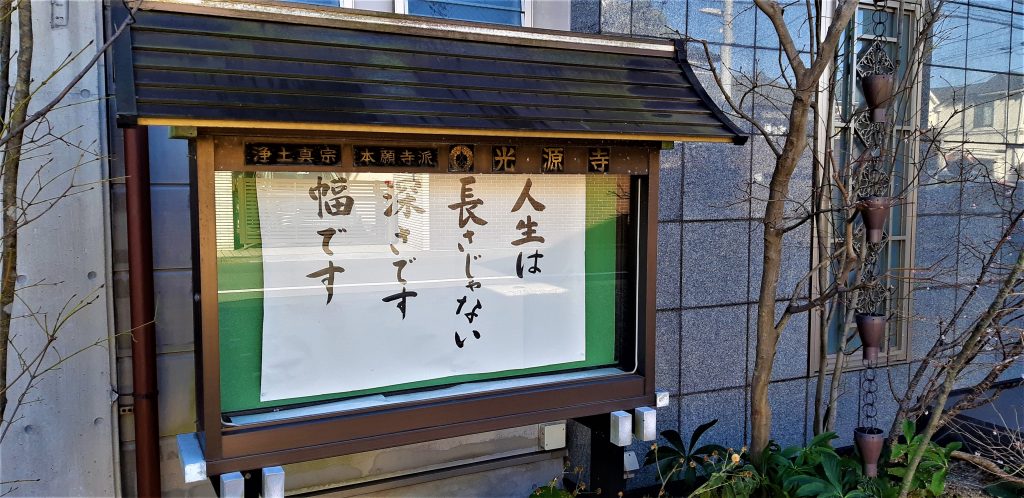 浄土真宗 本願寺派 光源寺
人生は
長さじゃない
深さです
幅です